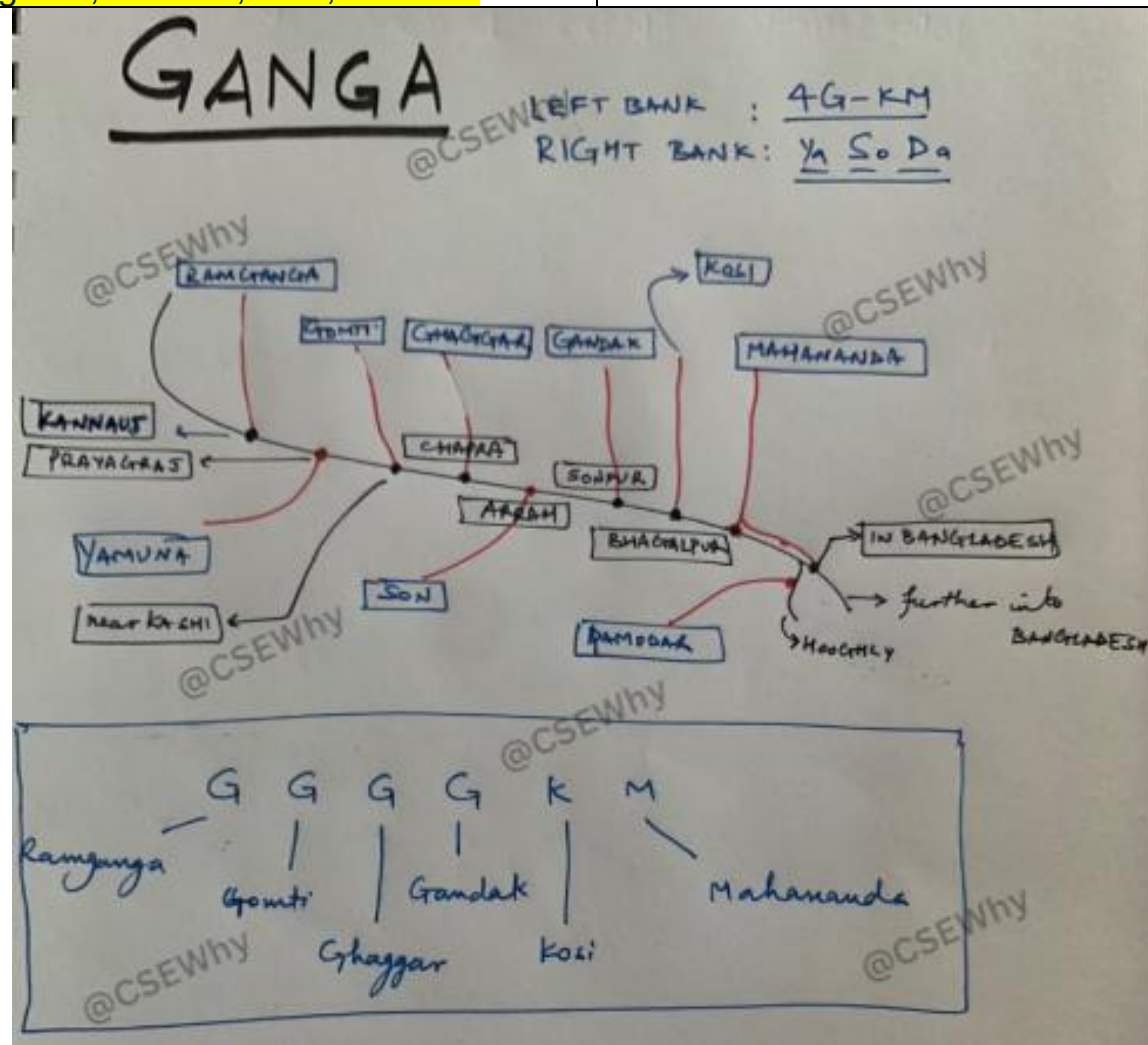 GANGA
LEFT BANK : 4G-KM
RIGHT BANK: Ya So Da
@CSEWhy
@CSEWhy
@CSEWhy
RAMGANGA
KOSI
GOMTI
GHAGGAR
GANDAK
MAHANANDA
KANNAUJ
PRAYAGRAJ
CHAPRA
SONPUR
ARRAH
BHAGALPUR
@CSEWhy
IN BANGLADESH
YAMUNA
SON
near KASHI
DAMODAR
HOOGHLY
further into
BANGLADESH
@CSEWhy
@CSEWhy
G G G G K M
Ramganga
Gomti
Gandak
Mahananda
Ghaggar
Kosi
@CSEWhy
@CSEWhy